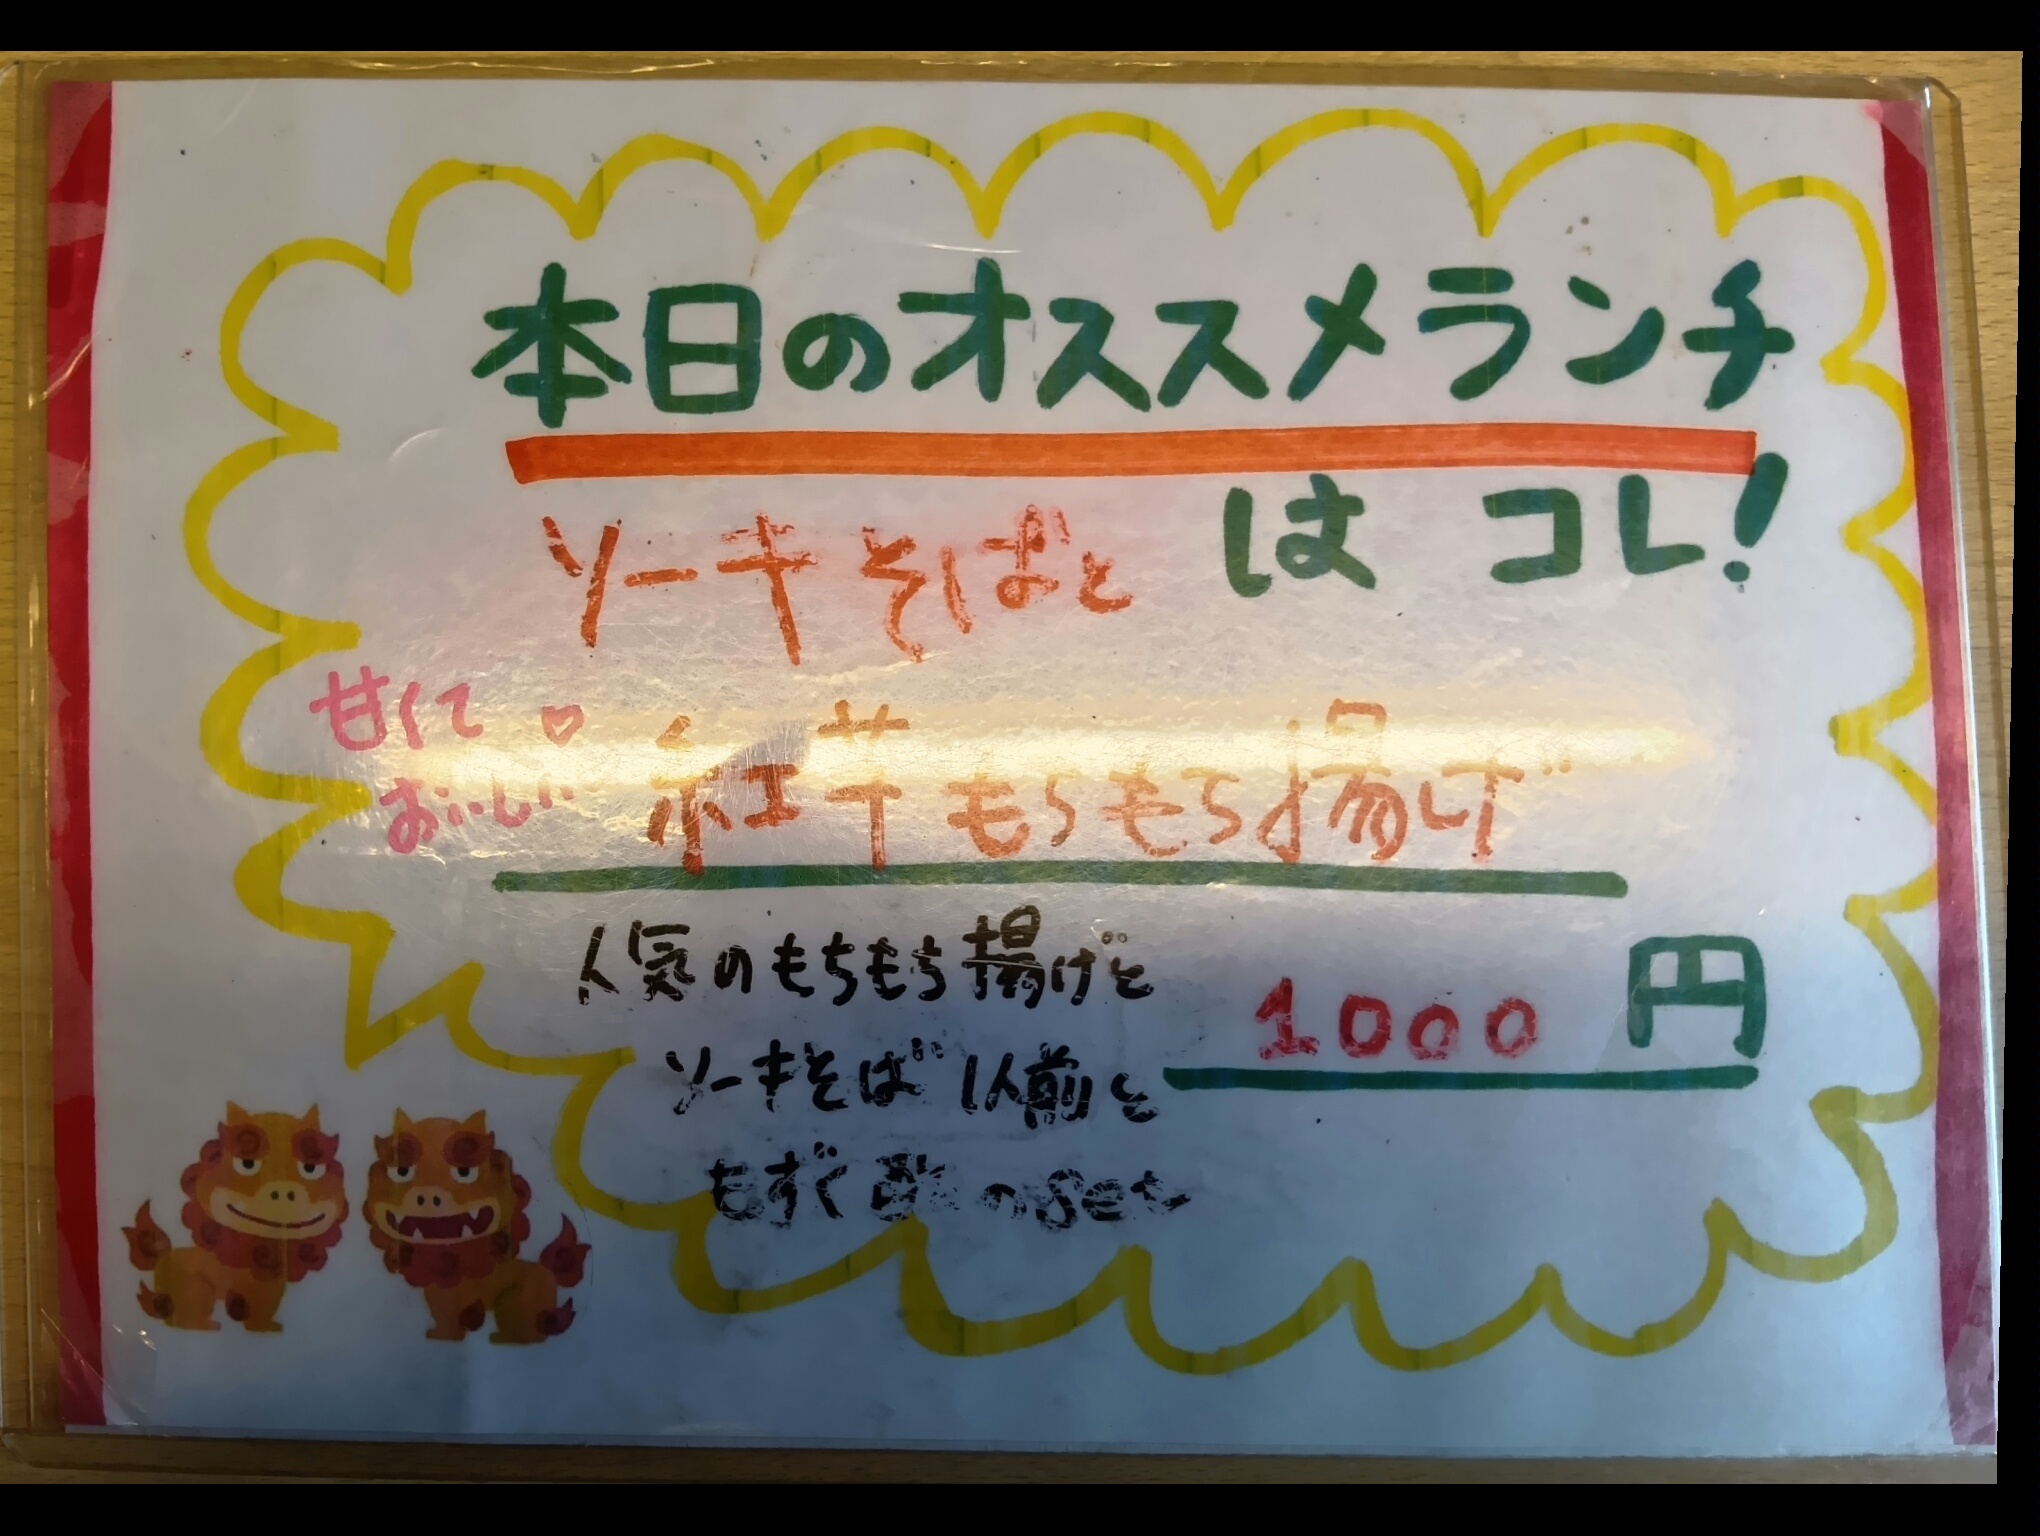 本日のオススメランチ
は コレ!
ソーキそばと
甘くて♡
おいしい
紅芋もちもち揚げ
人気のもちもち揚げと
ソーキそば1人前と
もずく酢のset
1000円